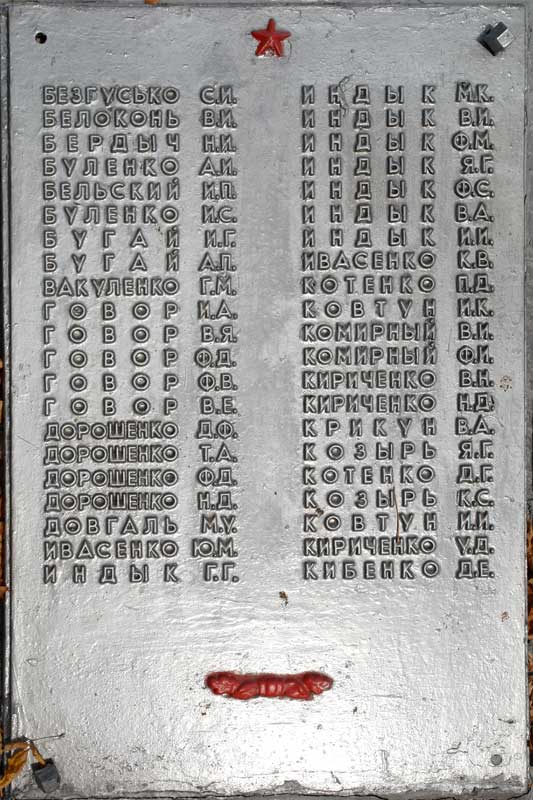 БЕЗГУСЬКО С.И.
БЕЛОКОНЬ В.И.
БЕРДЫЧ Н.И.
БУЛЕНКО А.И.
БЕЛЬСКИЙ И.П.
БУЛЕНКО И.С.
БУГАЙ И.Г.
БУГАЙ А.П.
ВАКУЛЕНКО Г.М.
ГОВОР И.А.
ГОВОР В.Я.
ГОВОР Ф.Д.
ГОВОР Ф.В.
ГОВОР В.Е.
ДОРОШЕНКО Д.Ф.
ДОРОШЕНКО Т.А.
ДОРОШЕНКО Ф.Д.
ДОРОШЕНКО Н.Д.
ДОВГАЛЬ М.У.
ИВАСЕНКО Ю.М.
ИНДЫК Г.Г.
ИНДЫК М.К.
ИНДЫК В.И.
ИНДЫК Ф.М.
ИНДЫК Я.Г.
ИНДЫК Ф.С.
ИНДЫК В.А.
ИНДЫК И.И.
ИВАСЕНКО К.В.
КОТЕНКО П.Д.
КОВТУН И.К.
КОМИРНЫЙ В.И.
КОМИРНЫЙ Ф.И.
КИРИЧЕНКО В.Н.
КИРИЧЕНКО Н.Д.
КРИКУН В.А.
КОЗЫРЬ Я.Г.
КОТЕНКО Д.Г.
КОЗЫРЬ К.С.
КОВТУН И.И.
КИРИЧЕНКО У.Д.
КИБЕНКО Д.Е.